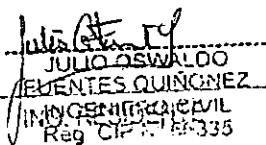 JULIO OSWALDO
FUENTES QUIÑONEZ
INGENIERO CIVIL
Reg CIP N°